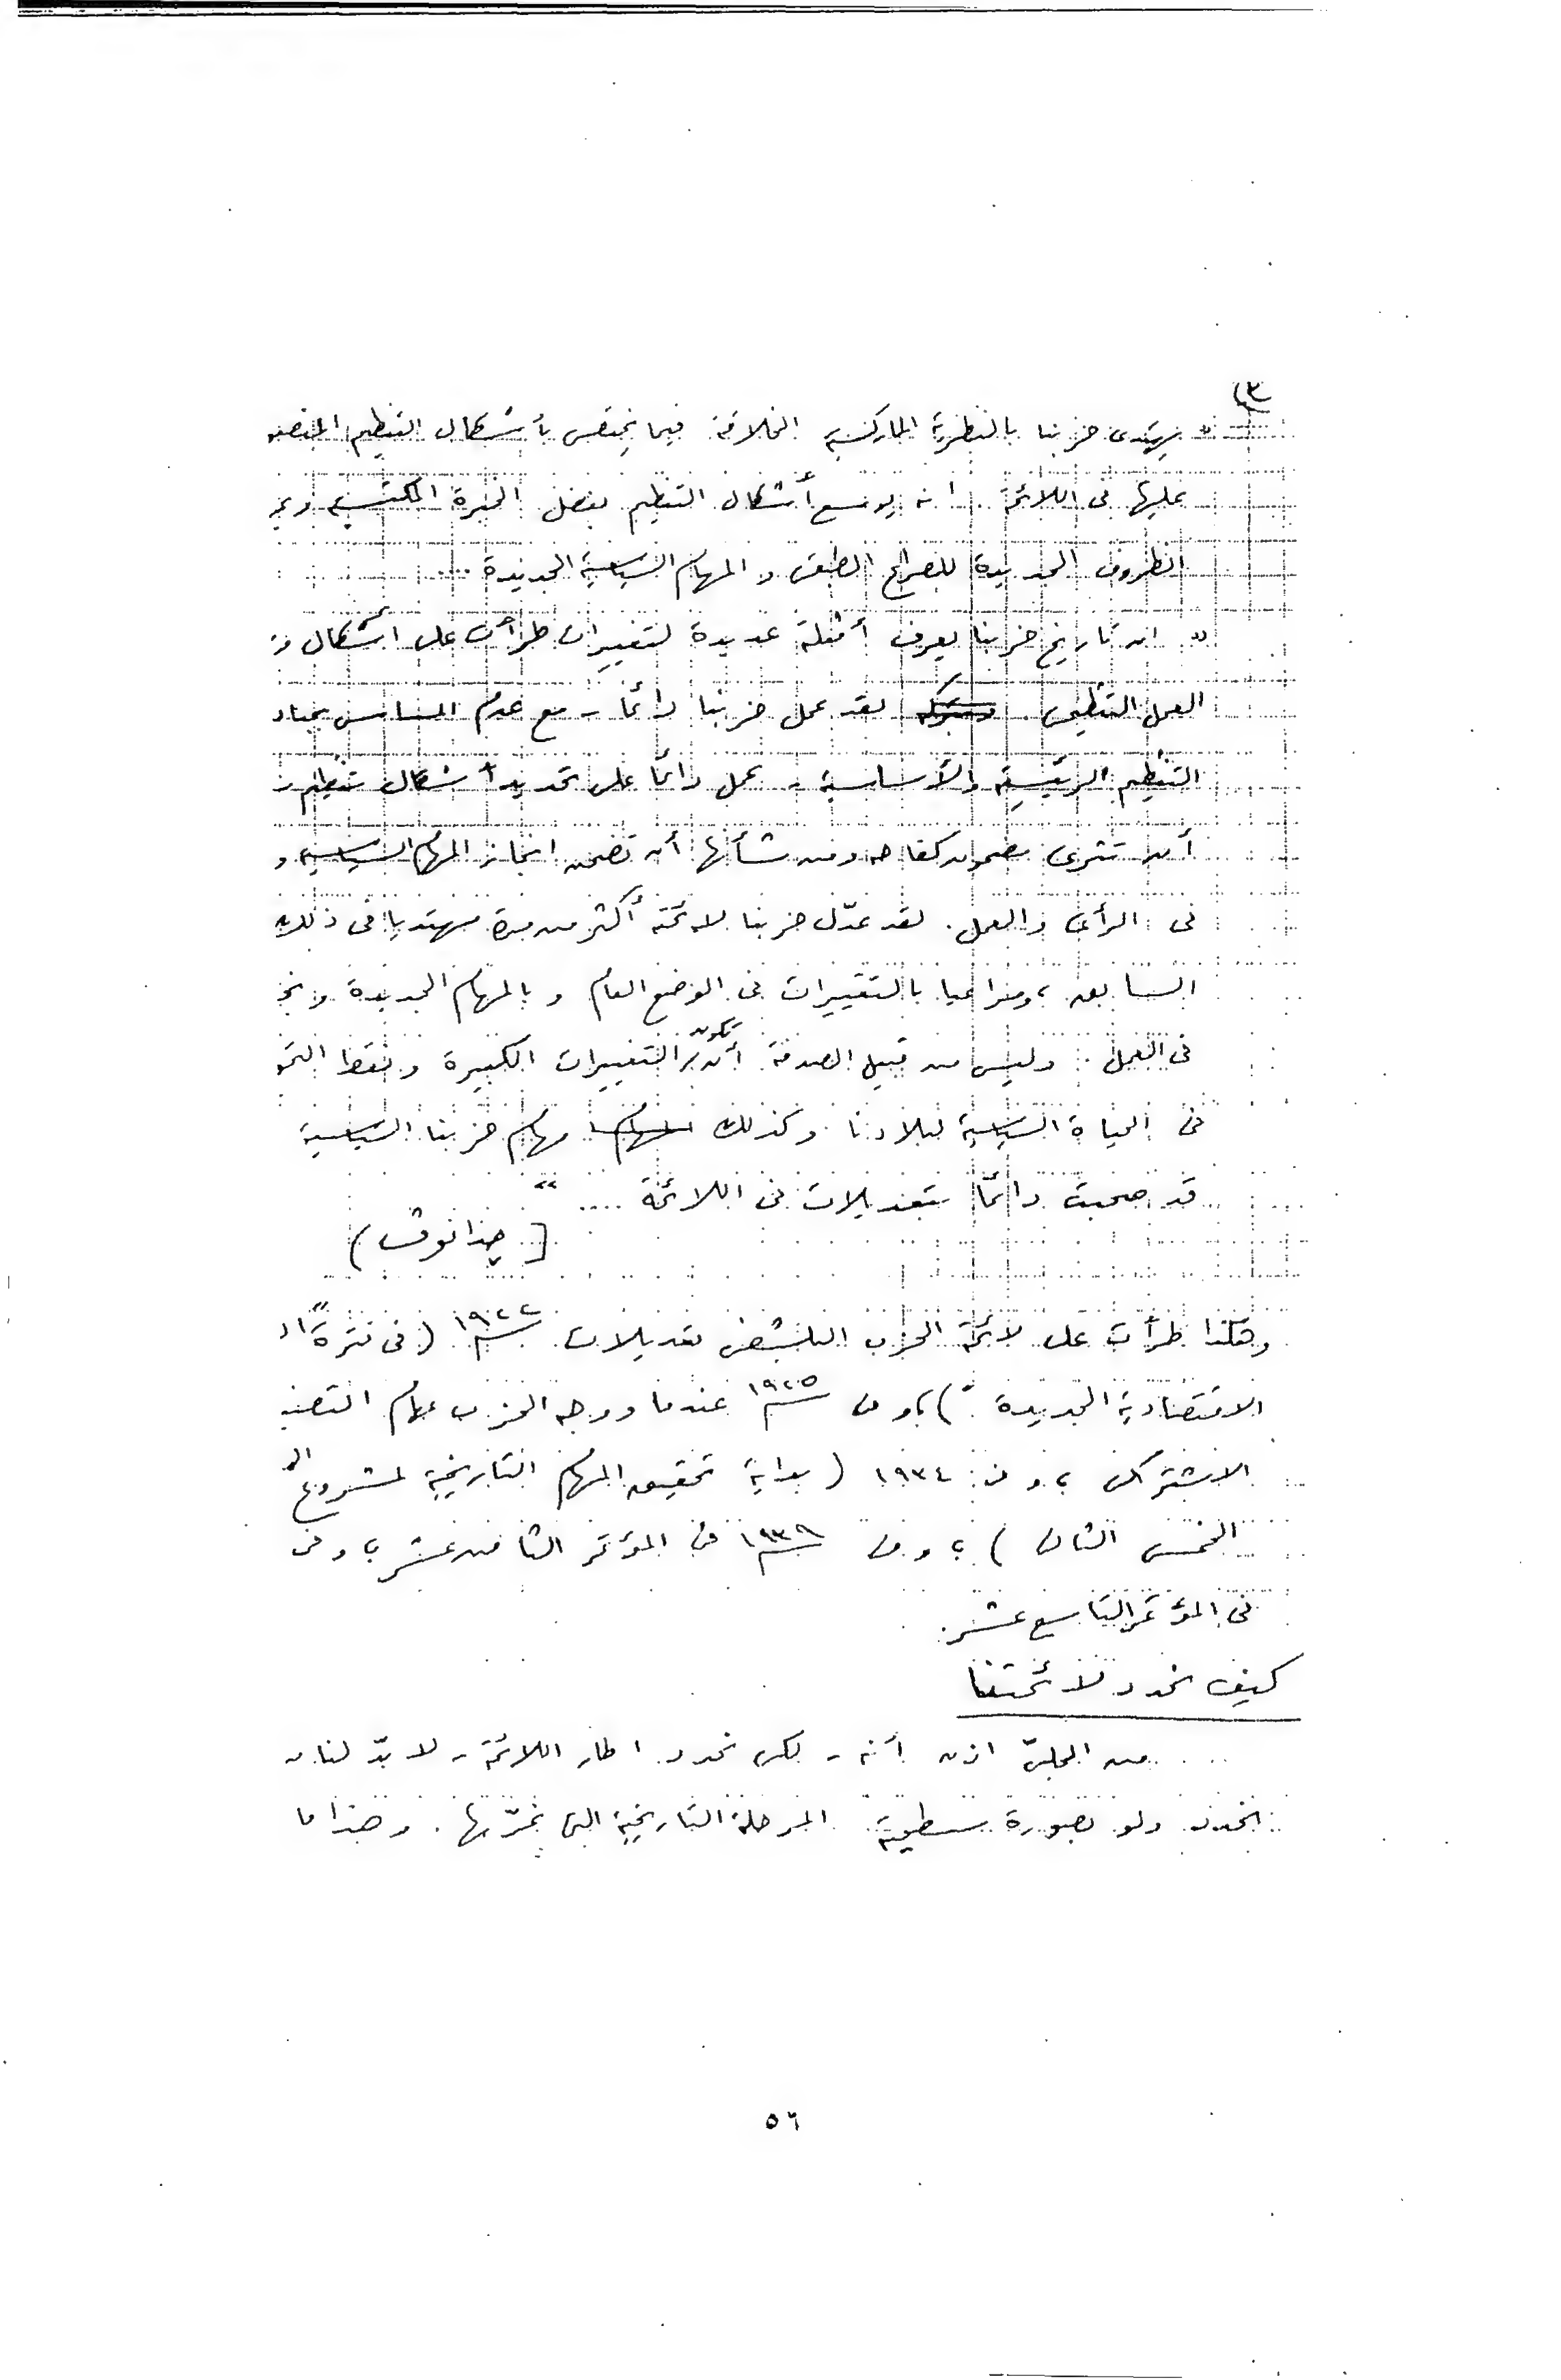 (٣
" يهتدى حزبنا بالنظرية الماركسية الخلاقة فيما يختص بأشكال التنظيم المنصو
عليها فى اللائحة . انه يوسع أشكال التنظيم بفضل الخبرة المكتسبة وير
الظروف الجديدة للصراع الطبقى و المهام السياسية الجديدة ....
" ان تاريخ حزبنا يعرف أمثلة عديدة لتغييرات طرأت على اشكال و
العمل التنظيمى . لقد عمل حزبنا دائما - مع عدم المساس بمباد
التنظيم الرئيسية والأساسية - عمل دائما على تحديد أشكال تنظيم
أن تثرى مضمون كفاحه ومن شأنها أن تضمن انجاز المهام السياسية و
فى الرأى والعمل . لقد عدّل حزبنا لائحته أكثر من مرة مهتديا فى ذلك
السابق ، ومراعيا بالتغييرات فى الوضع العام و بالمهام الجديدة و
فى العمل . وليس من قبيل الصدفة أن تكون التغييرات الكبيرة ونقط التحو
فى الحياة السياسية لبلادنا وكذلك مهام حزبنا السياسية
قد صحبت دائما بتعديلات فى اللائحة .... "
[ جدانوف )
وهكذا طرأت على لائحة الحزب البلشفى تعديلات ١٩٢٢ ( فى فترة " ا
الاقتصادية الجديدة " ) ، وفى ١٩٢٥ عندما ووجه الحزب بمهام التصنيـ
الاشتراكى ، و فى ١٩٣٤ ( بداية تحقيق المهام التاريخية لمشروع ال
الخمسى الثانى ) ، وفى ١٩٣٩ فى المؤتمر الثامن عشر ، وفى
فى المؤتمر التاسع عشر .
كيف نحدد لائحتنا
من الجلىّ اذن أنه - لكى نحدد اطار اللائحة - لا بدّ لنا
نحدد ولو بصورة سطحية المرحلة التاريخية التى نمرّ بها . وهذا ما
٥٦